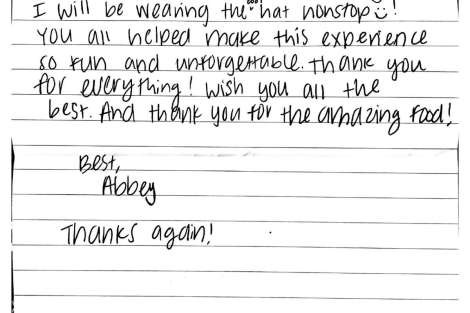 I will be wearing the hat nonstop☺!
You all helped make this experience
so fun and unforgettable. Thank you
for everything! Wish you all the
best. And thank you for the amazing food!
Best,
Abbey
Thanks again!